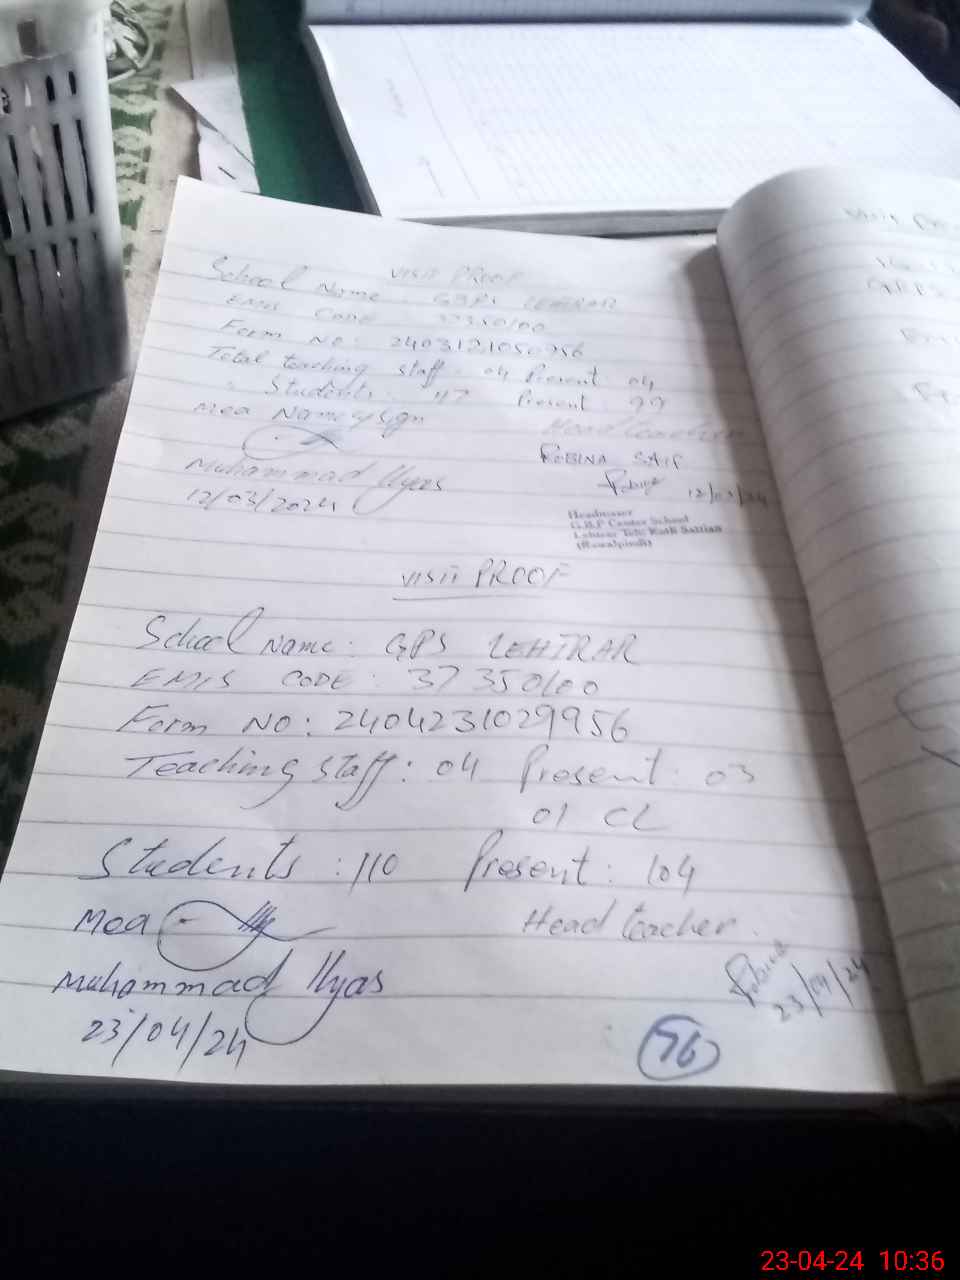 VISIT PROOF
School Name: GBPS LEHTRAR
EMIS CODE 37350100
Form No: 2403121050956
Total teaching staff: 04 Present: 04
" Students: 117 Present: 99
Mea Name & sign Head teacher
ROBINA SAIF
Robina 12/03/24
Muhammad Ilyas
12/03/2024
Headmaster
G.B.P Center School
Lehtrar Teh: Kotli Sattian
(Rawalpindi)
VISIT PROOF
School Name: GPS LEHTRAR
EMIS CODE: 37350100
Form NO: 2404231029956
Teaching staff: 04 Present: 03
01 CL
Students: 110 Present: 104
Mea Head teacher.
Muhammad Ilyas
23/04/24
Robina
23/04/24
76
Visit
23-04-24 10:36